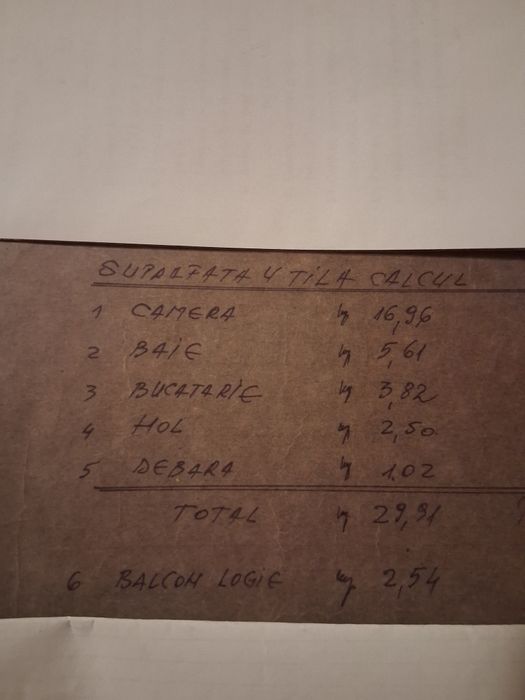 SUPRAFATA UTILA CALCUL
1 CAMERA mp 16,96
2 BAIE mp 5,61
3 BUCATARIE mp 3,82
4 HOL mp 2,50
5 DEBARA mp 1,02
TOTAL mp 29,91
6 BALCON LOGIE mp 2,54